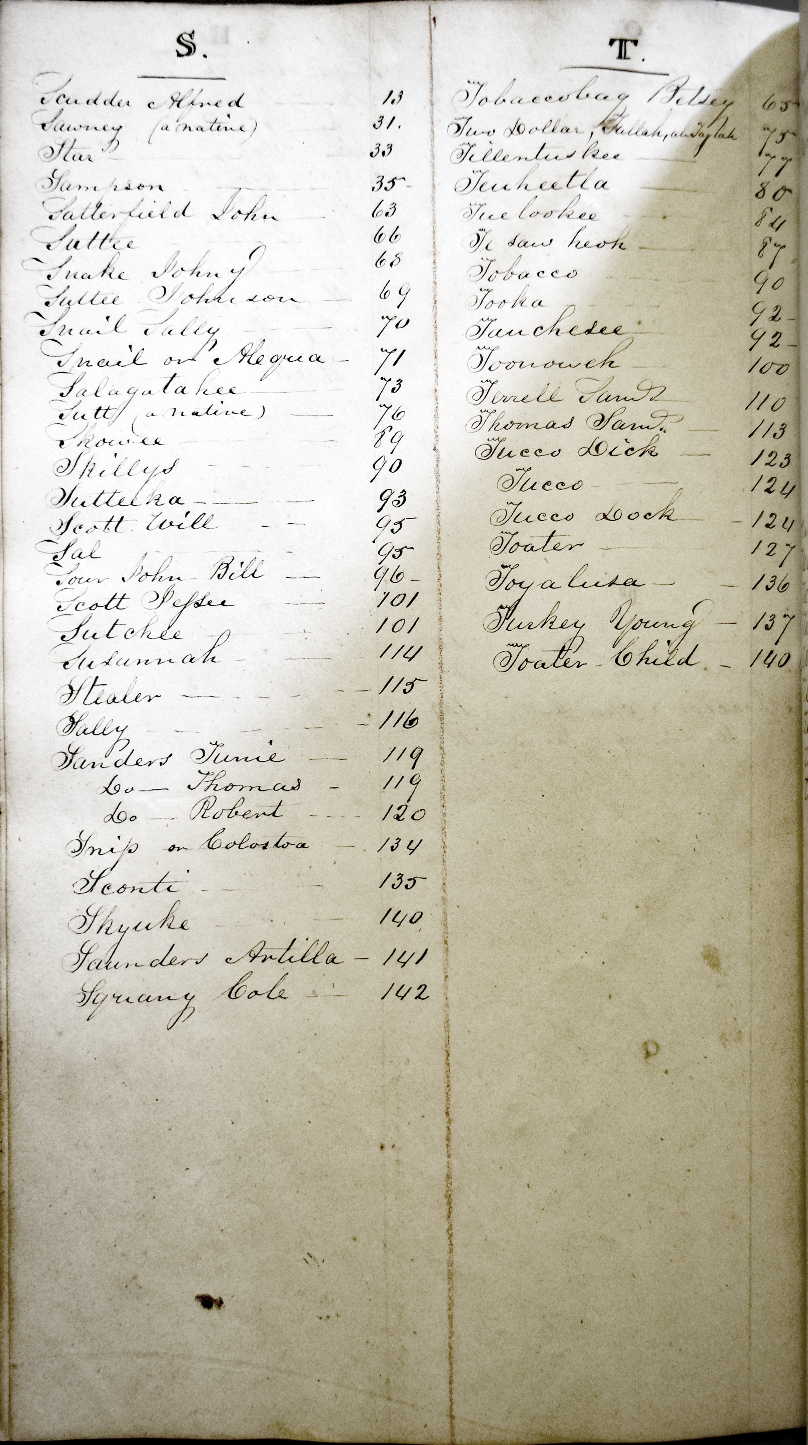 S.
Scudder Alfred 13
Sawney (a native) 31.
Star 33
Sampson 35
Satterfield John 63
Suttee 66
Snake Johny 68
Suttee Johnson 69
Snail Sally 70
Snail or Alequa 71
Salagatahee 73
Sutt (a native) 76
Skowee 89
Skillys 90
Sutteeka 93
Scott Will 95
Sal 95
Sour John Bill 96
Scott Jessee 101
Sutchee 101
Susannah 114
Stealer 115
Sally 116
Sanders Junie 119
Do Thomas 119
Do Robert 120
Snip or Colostoa 134
Sconti 135
Skyuke 140
Saunders Artilla 141
Squany Cole 142
T.
Tobaccobag Betsey 65
Two Dollar, Tallah, 75
Tillentuskee 77
Teuheetla 80
Tuelookee 84
Te saw heok 87
Tobacco 90
Tooka 92
Tauchesee 92
Toonoweh 100
Terrell Saml 110
Thomas Saml. 113
Tucco Dick 123
Tucco 124
Tucco Dock 124
Toater 127
Toyalusa 136
Turkey Young 137
Toater Child 140